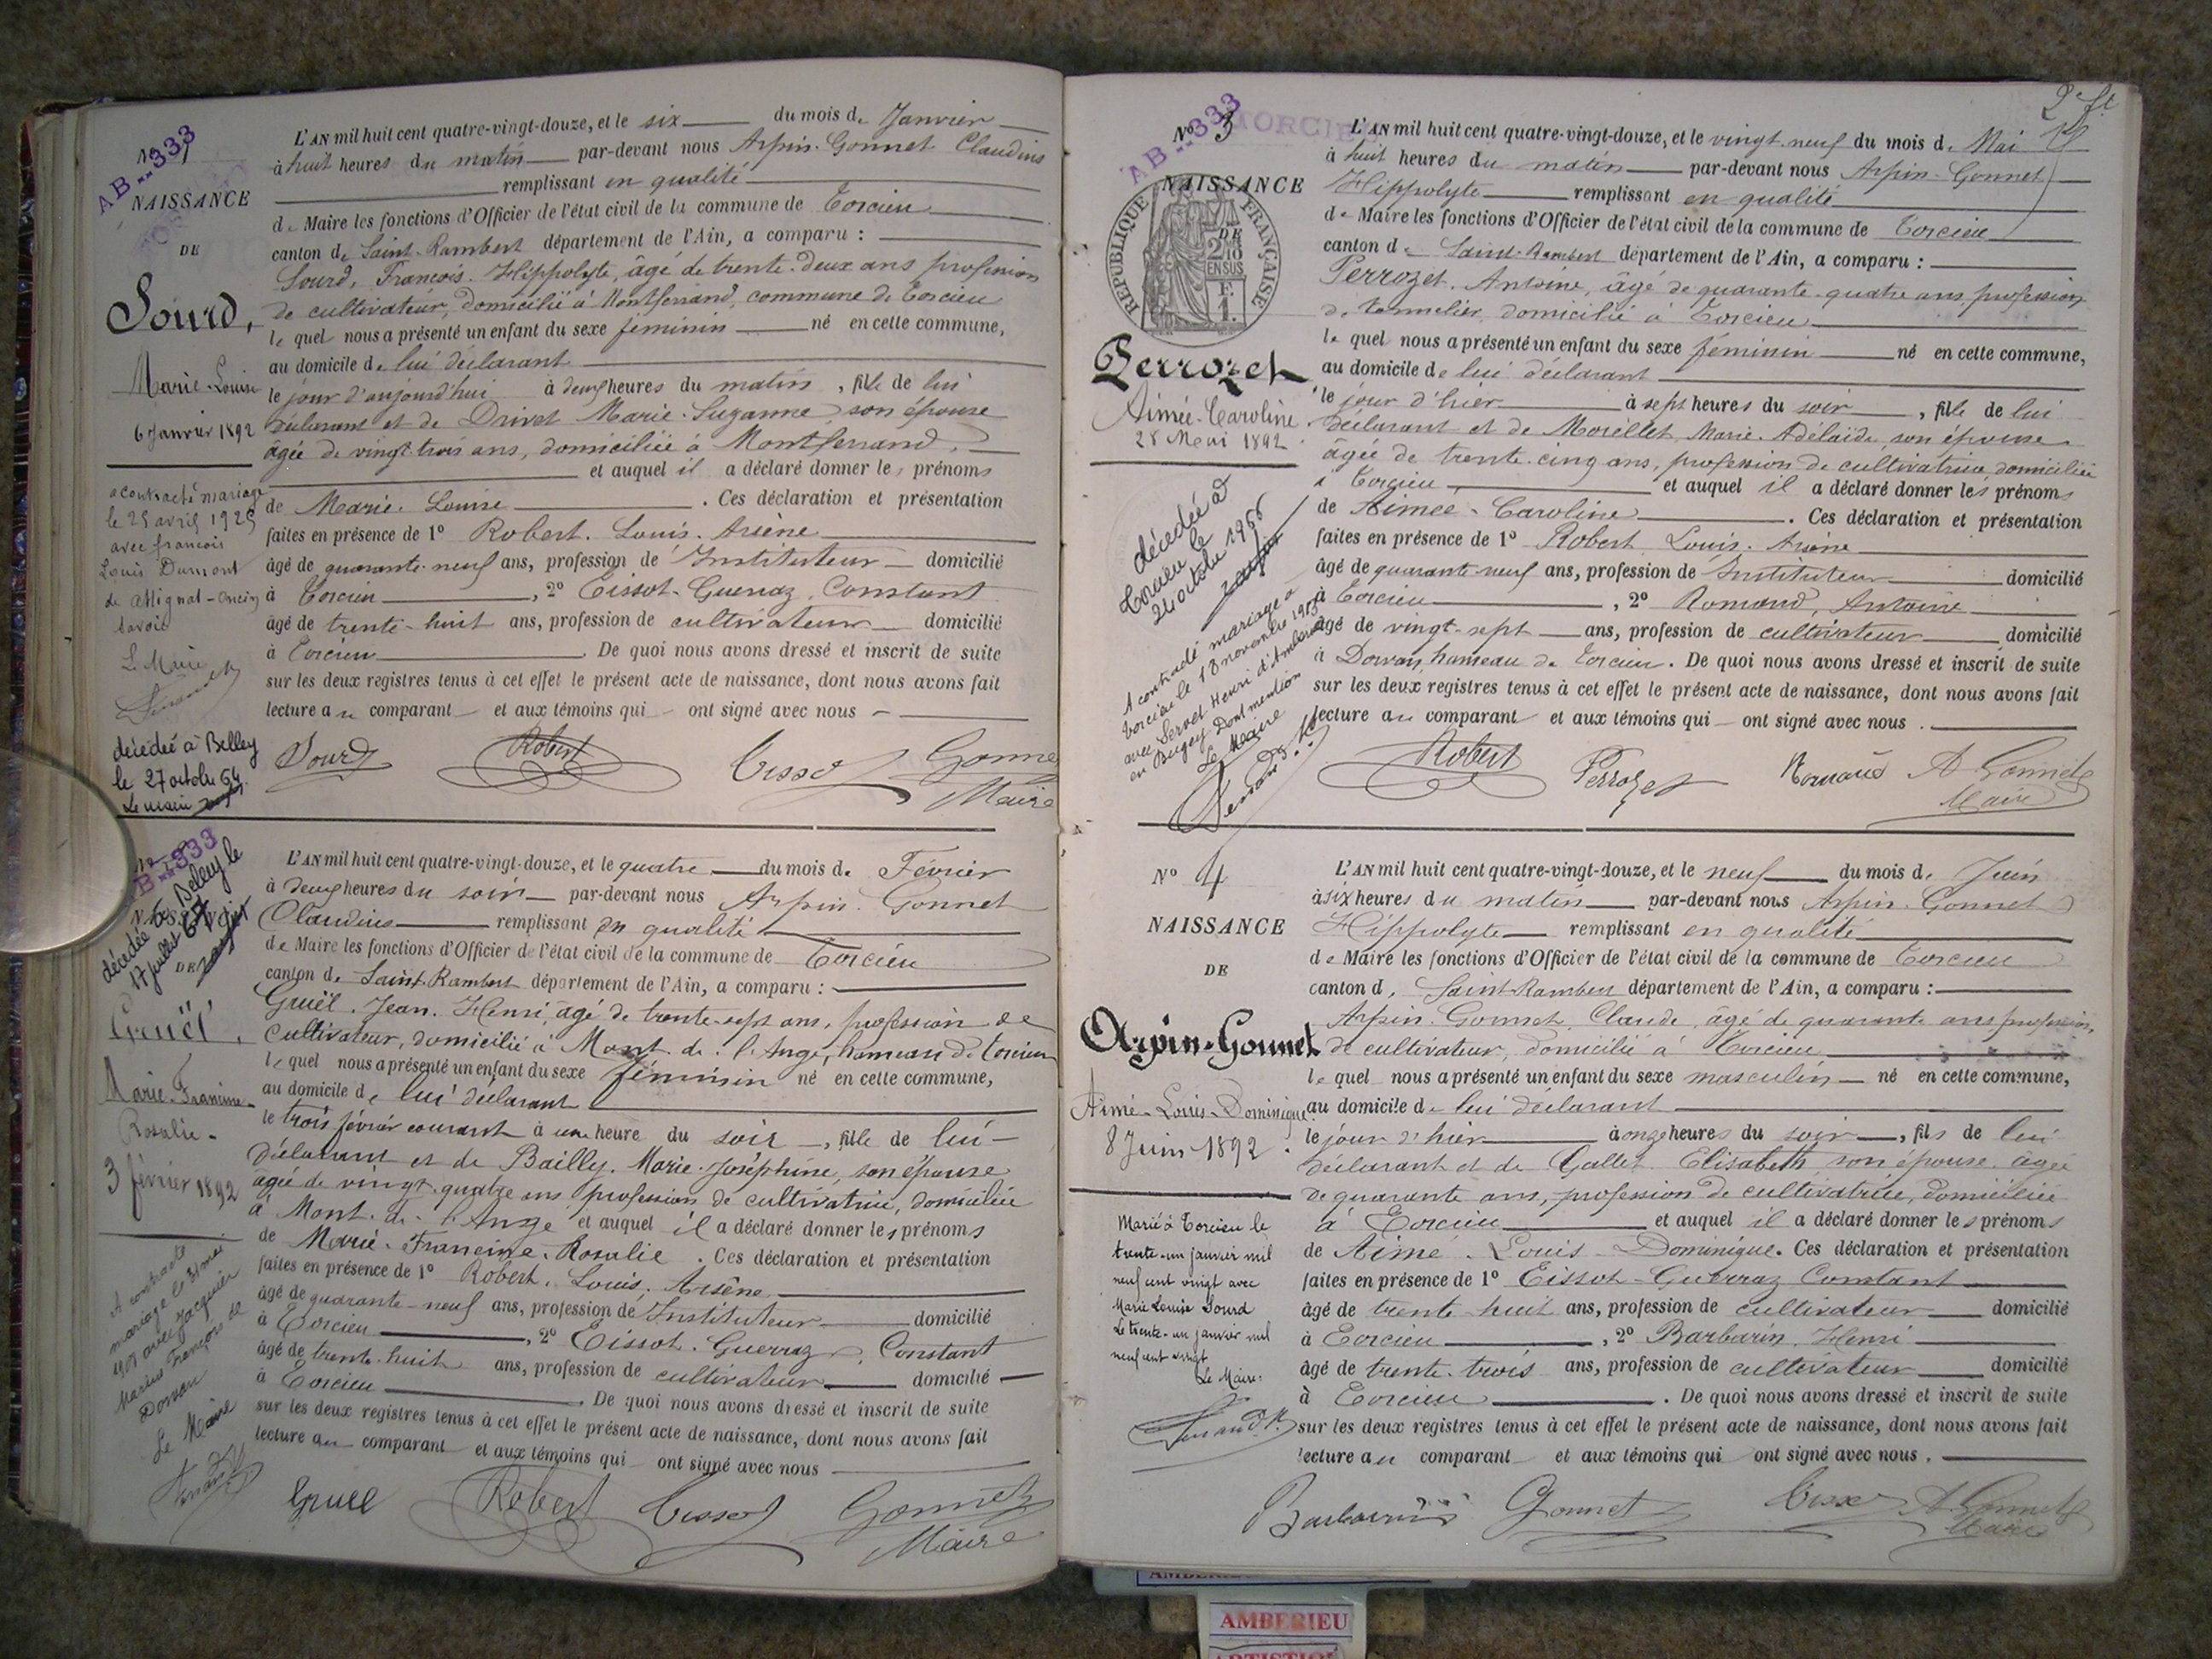 N° 1
AB..333
NAISSANCE
DE
Sourd,
Marie-Louise
6 Janvier 1892
a contracté mariage
le 25 avril 1925
avec francois
Louis Dumont
de Attignat-Oncin
Savoie
Le Maire
décédée à Belley
le 27 octobre 64
Le maire
L'AN mil huit cent quatre-vingt-douze, et le six du mois de Janvier
à huit heures du matin par-devant nous Arpin-Gonnet Claudius
remplissant en qualité
de Maire les fonctions d'Officier de l'état civil de la commune de Torcieu
canton de Saint-Rambert département de l'Ain, a comparu :
Sourd, François-Hippolyte, âgé de trente-deux ans profession
de cultivateur, domicilié à Montferrand, commune de Torcieu
le quel nous a présenté un enfant du sexe féminin né en cette commune,
au domicile de lui déclarant
le jour d'aujourd'hui à deux heures du matin, fille de lui
déclarant et de Drivet Marie-Suzanne son épouse
âgée de vingt-trois ans, domiciliée à Montferrand,
et auquel il a déclaré donner les prénoms
de Marie-Louise . Ces déclaration et présentation
faites en présence de 1° Robert, Louis-Arsène
âgé de quarante-neuf ans, profession de Instituteur domicilié
à Torcieu, 2° Tissot-Guerraz, Constant
âgé de trente-huit ans, profession de cultivateur domicilié
à Torcieu . De quoi nous avons dressé et inscrit de suite
sur les deux registres tenus à cet effet le présent acte de naissance, dont nous avons fait
lecture au comparant et aux témoins qui ont signé avec nous
Sourd Robert Tissot Gonnet
Maire
B..333
décédée à Belley le
17 juillet 67
DE
Gruël,
Marie-Francine-
Rosalie-
3 février 1892
A contracté
mariage le 31 mai
avec Jacquier
Marius François de
Dorvan
Le Maire
L'AN mil huit cent quatre-vingt-douze, et le quatre du mois de Février
à deux heures du soir par-devant nous Arpin-Gonnet
Claudius remplissant en qualité
de Maire les fonctions d'Officier de l'état civil de la commune de Torcieu
canton de Saint-Rambert département de l'Ain, a comparu :
Gruël, Jean-Henri, âgé de trente-sept ans, profession de
cultivateur, domicilié à Mont-de-l'Ange, hameau de Torcieu
le quel nous a présenté un enfant du sexe féminin né en cette commune,
au domicile de lui déclarant
le trois février courant à une heure du soir, fille de lui
déclarant et de Bailly, Marie-Joséphine, son épouse
âgée de vingt-quatre ans profession de cultivatrice, domiciliée
à Mont-de-l'Ange et auquel il a déclaré donner les prénoms
de Marie-Francine-Rosalie . Ces déclaration et présentation
faites en présence de 1° Robert, Louis, Arsène
âgé de quarante-neuf ans, profession de Instituteur domicilié
à Torcieu, 2° Tissot-Guerraz, Constant
âgé de trente-huit ans, profession de cultivateur domicilié
à Torcieu . De quoi nous avons dressé et inscrit de suite
sur les deux registres tenus à cet effet le présent acte de naissance, dont nous avons fait
lecture au comparant et aux témoins qui ont signé avec nous
Gruel Robert Tissot Gonnet
Maire
2e ft
N° 3
AB..333
TORCIEU
NAISSANCE
DE
RÉPUBLIQUE FRANÇAISE
2/10
EN SUS
F.
1.
Perrozet
Aimée-Caroline
28 Mai 1892
décédée à
Torcieu le
24 octobre 1966
A contracté mariage à
Torcieu le 18 novembre
avec Servet Henri d'Ambérieu
en Bugey Dont mention
Le Maire
L'AN mil huit cent quatre-vingt-douze, et le vingt-neuf du mois de Mai
à huit heures du matin par-devant nous Arpin-Gonnet
Hippolyte remplissant en qualité
de Maire les fonctions d'Officier de l'état civil de la commune de Torcieu
canton de Saint-Rambert département de l'Ain, a comparu :
Perrozet, Antoine, âgé de quarante-quatre ans profession
de tonnelier, domicilié à Torcieu
le quel nous a présenté un enfant du sexe féminin né en cette commune,
au domicile de lui déclarant
le jour d'hier à sept heures du soir, fille de lui
déclarant et de Morellet, Marie-Adélaïde, son épouse
âgée de trente-cinq ans, profession de cultivatrice domiciliée
à Torcieu, et auquel il a déclaré donner les prénoms
de Aimée-Caroline . Ces déclaration et présentation
faites en présence de 1° Robert Louis-Arsène
âgé de quarante-neuf ans, profession de Instituteur domicilié
à Torcieu, 2° Romand, Antoine
âgé de vingt-sept ans, profession de cultivateur domicilié
à Dorvan, hameau de Torcieu . De quoi nous avons dressé et inscrit de suite
sur les deux registres tenus à cet effet le présent acte de naissance, dont nous avons fait
lecture au comparant et aux témoins qui ont signé avec nous .
Robert Perrozet Romand A Gonnet
Maire
N° 4
NAISSANCE
DE
Arpin-Gonnet
Aimé-Louis-Dominique
8 Juin 1892
Marié à Torcieu le
trente-un janvier mil
neuf cent vingt avec
Marie Louise Sourd
Le trente-un janvier mil
neuf cent vingt
Le Maire:
L'AN mil huit cent quatre-vingt-douze, et le neuf du mois de Juin
à six heures du matin par-devant nous Arpin-Gonnet
Hippolyte remplissant en qualité
de Maire les fonctions d'Officier de l'état civil de la commune de Torcieu
canton de Saint-Rambert département de l'Ain, a comparu :
Arpin-Gonnet, Claude, âgé de quarante ans profession
de cultivateur, domicilié à Torcieu
le quel nous a présenté un enfant du sexe masculin né en cette commune,
au domicile de lui déclarant
le jour d'hier à onze heures du soir, fils de lui
déclarant et de Gallet Elisabeth son épouse âgée
de quarante ans, profession de cultivatrice, domiciliée
à Torcieu et auquel il a déclaré donner les prénoms
de Aimé-Louis-Dominique. Ces déclaration et présentation
faites en présence de 1° Tissot-Guerraz Constant
âgé de trente-huit ans, profession de cultivateur domicilié
à Torcieu, 2° Barbarin, Henri
âgé de trente-trois ans, profession de cultivateur domicilié
à Torcieu . De quoi nous avons dressé et inscrit de suite
sur les deux registres tenus à cet effet le présent acte de naissance, dont nous avons fait
lecture au comparant et aux témoins qui ont signé avec nous .
Barbarin Gonnet Tissot A. Gonnet
Maire
AMBERIEU